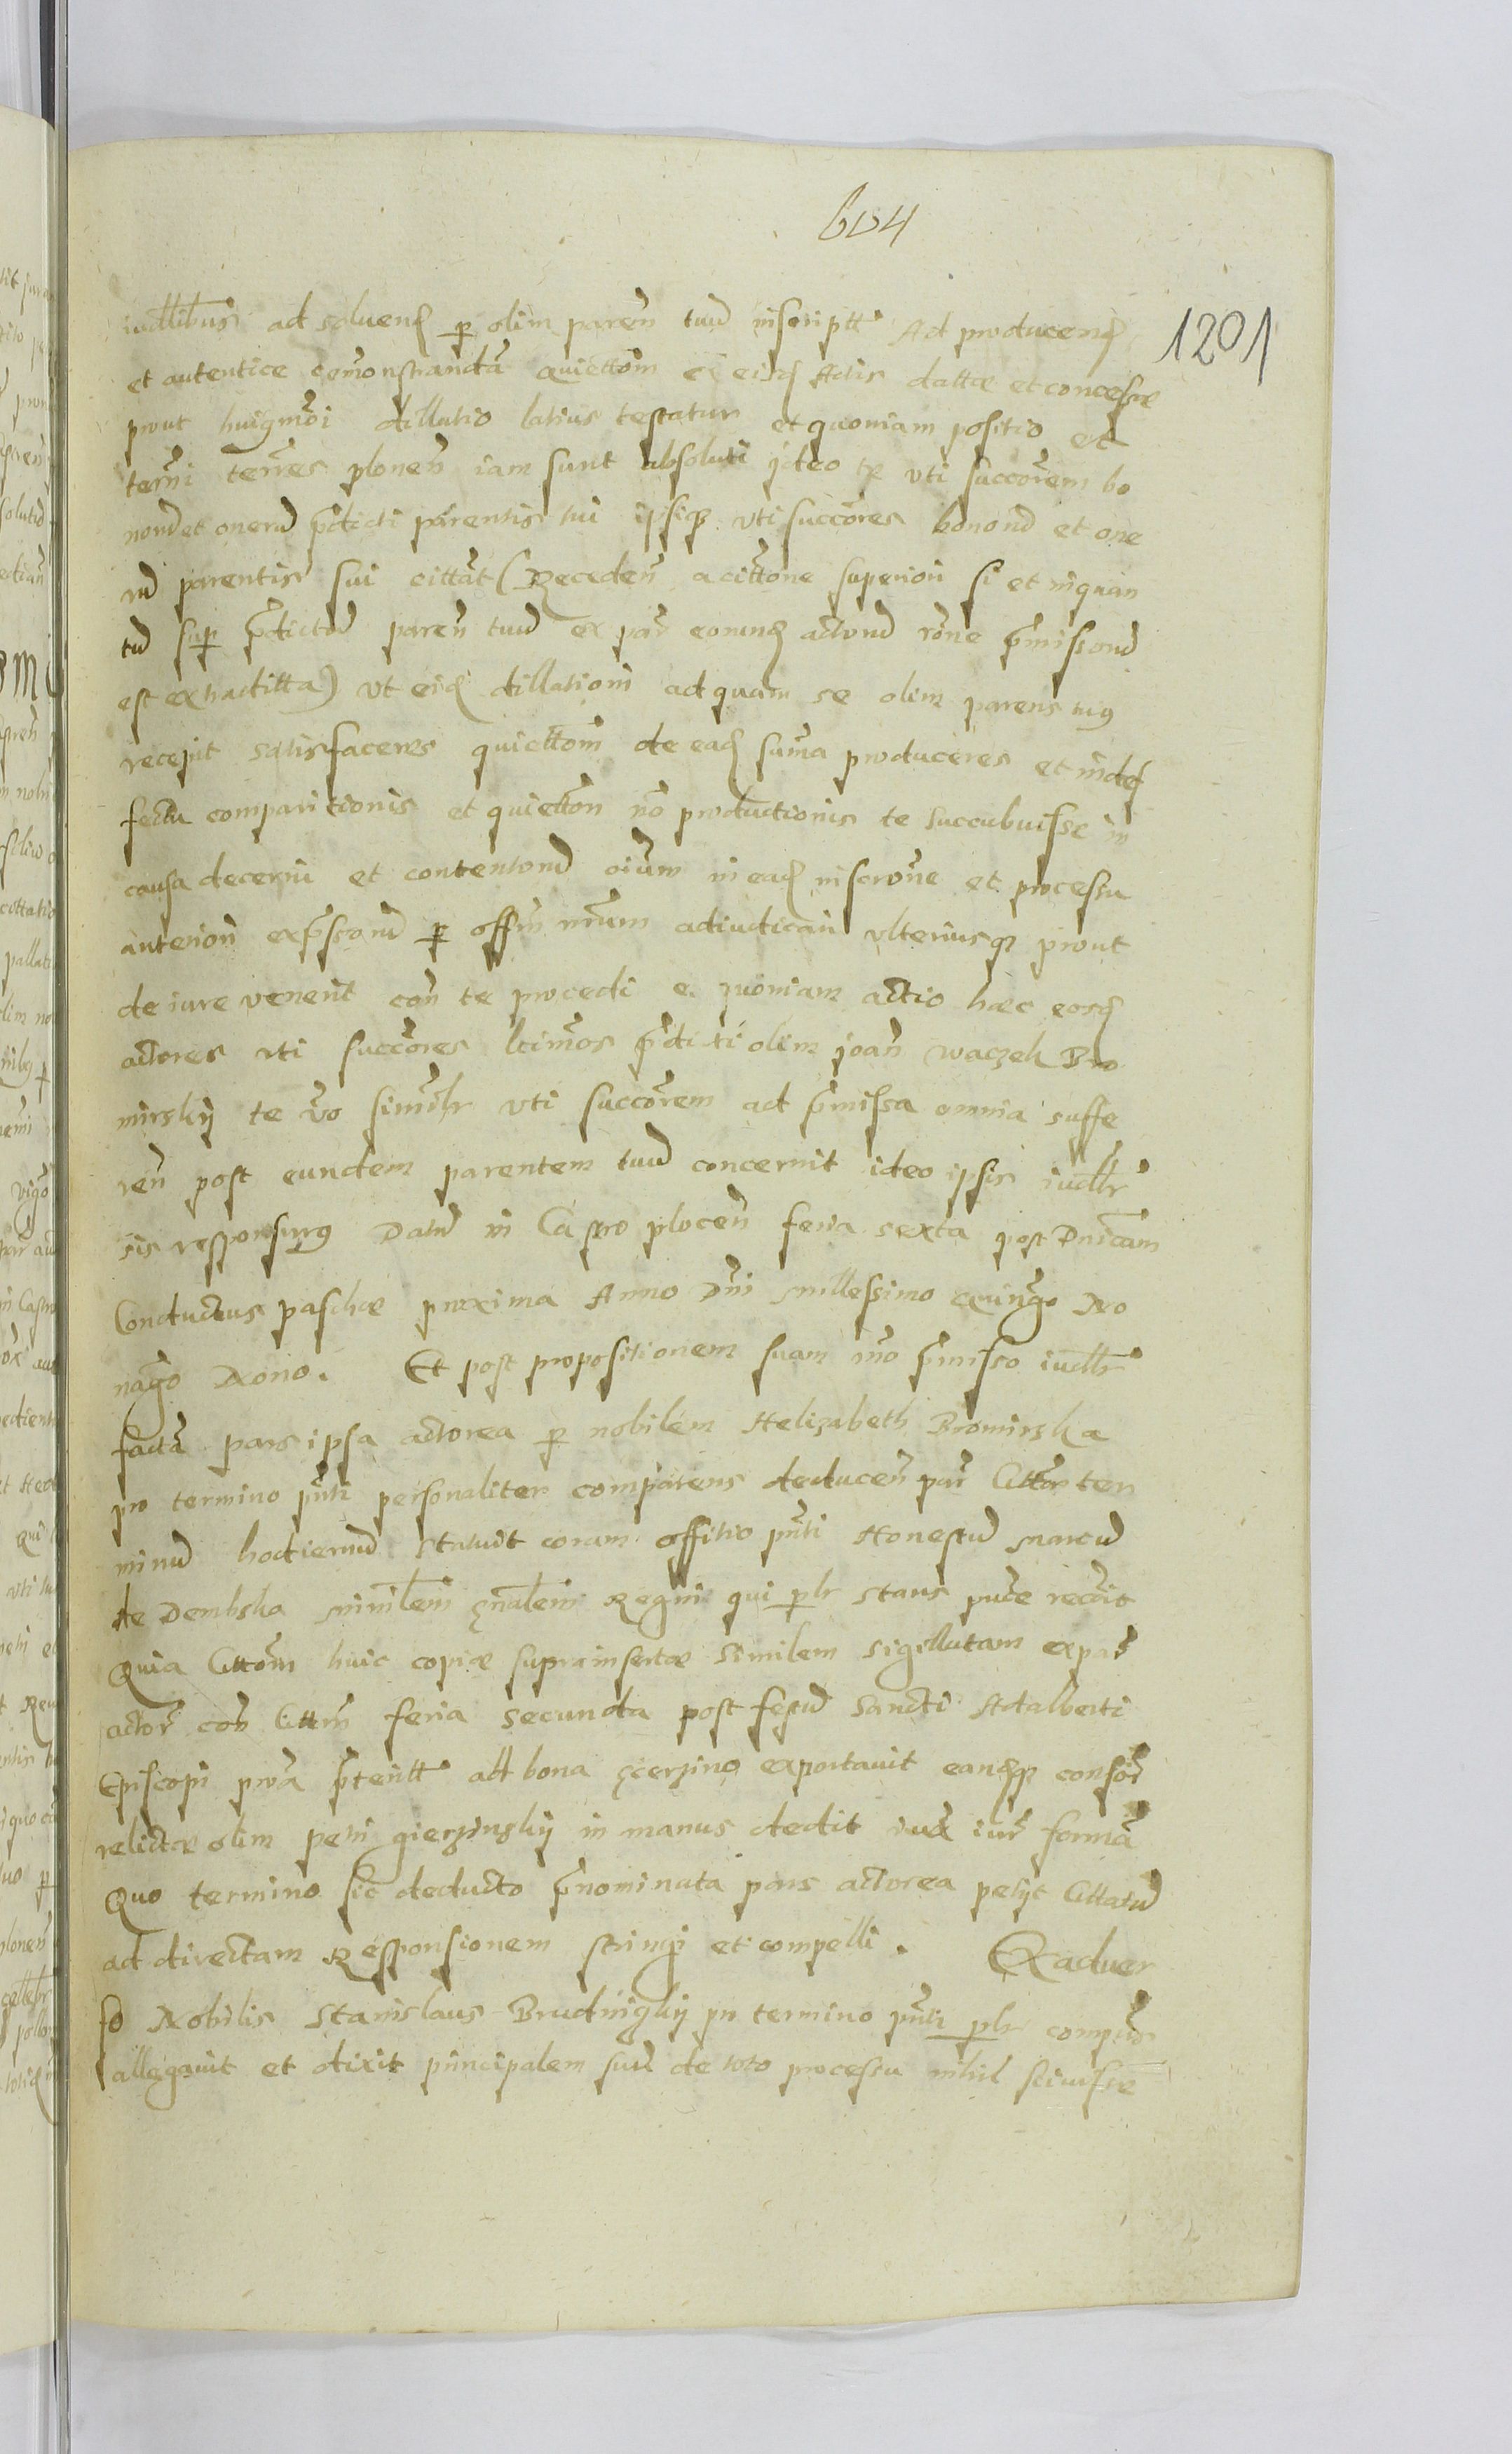 604
1201
iudlibus ad soluend p olim paren tuu inscriptt Ad producend
et autentice demonstranda quiettom ex eisd Actis dattae et concessae
prout huigmoi dillatio latius testatur et quoniam positio et
termi terres plonen iam sunt absoluti ideo te vti succorem bo
norum et onerum pdicti parentis tui ipsiq vti succores bonoru et one
ru parentis sui cittat (Receden a cittone superiori si et inquan
tu sup pdictu paren tuu ex par eorund actoru rone pmissoru
est extradita) vt eid dillationi ad quam se olim parens tuus
recepit satisfaceres quiettom de ead suma produceres et in def
fectu comparitionis et quietton no productionis te succubuisse in
causa decerni et contentoru oium in ead inscrone et processu
anteriori expssoru p offm nrum adiudicari vlteriusq prout
de iure venerit con te procedi quoniam actio haec eosd
actores vti succores ltimos pdicti olim Joan Waczek Bro
mirskij te vo similr vti succorem ad pmissa omnia suffe
ren post eundem parentem tuu concernit ideo ipsis iudlr
sis responsurus Datu in Castro plocen feria sexta post Dnicam
Conductus paschae proxima Anno Dni Millessimo Quingo No
nago Nono. Et post propositionem suam mo pmisso iudlr
facta pars ipsa actorea p nobilem Helizabeth Bromirska
pro termino pnti personaliter comparens deducen par Citton ter
minu hodiernu statuit coram offitio pnti Honestu Marcu
de Dembska Minrlem gnalem Regni qui plr stans puce recoit
Quia Cittom huic copiae suprainsertae similem sigillatam ex par
actor con Cittm feria secunda post festu Sancti Adalberti
Episcopi prox pteritt ad bona gierzino exportauit eandq consor
relictae olim petri gierzinskij in manus dedit iux iur forma
Quo termino sic deducto pnominata pars actorea petijt Cittatu
ad directam Responsionem stringi et compelli. Ex aduer
so Nobilis Stanislaus Brudnigkij pro termino pnti plr comparens
allegauit et dixit principalem suu de toto processu nihil sciuisse